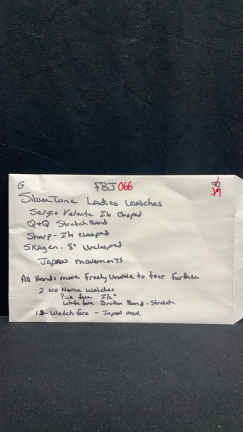 G FBJ 066
Silvertone Ladies Watches
Sergio Valente 7½ Clasped
Q+Q Stretch Band
Sharp - 7½ Clasped
Skagen. 8" Unclasped
Japan movements
All Hands move Freely Unable to test Further
2 No Name Watches
Pink face 7½"
White face Broken Band - Stretch
1 - Watch face - Japan mov.